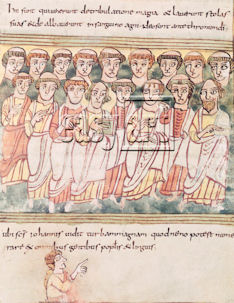 hi sunt qui venerunt detribulatione magna & laverunt stolas
suas & dealbaverunt in sanguine agni · ideo sunt ante thronum di ·
ubi scs iohannis vidit turbam magnam quod nemo potest nume
rare & omnibus gentibus populis & linguis ·